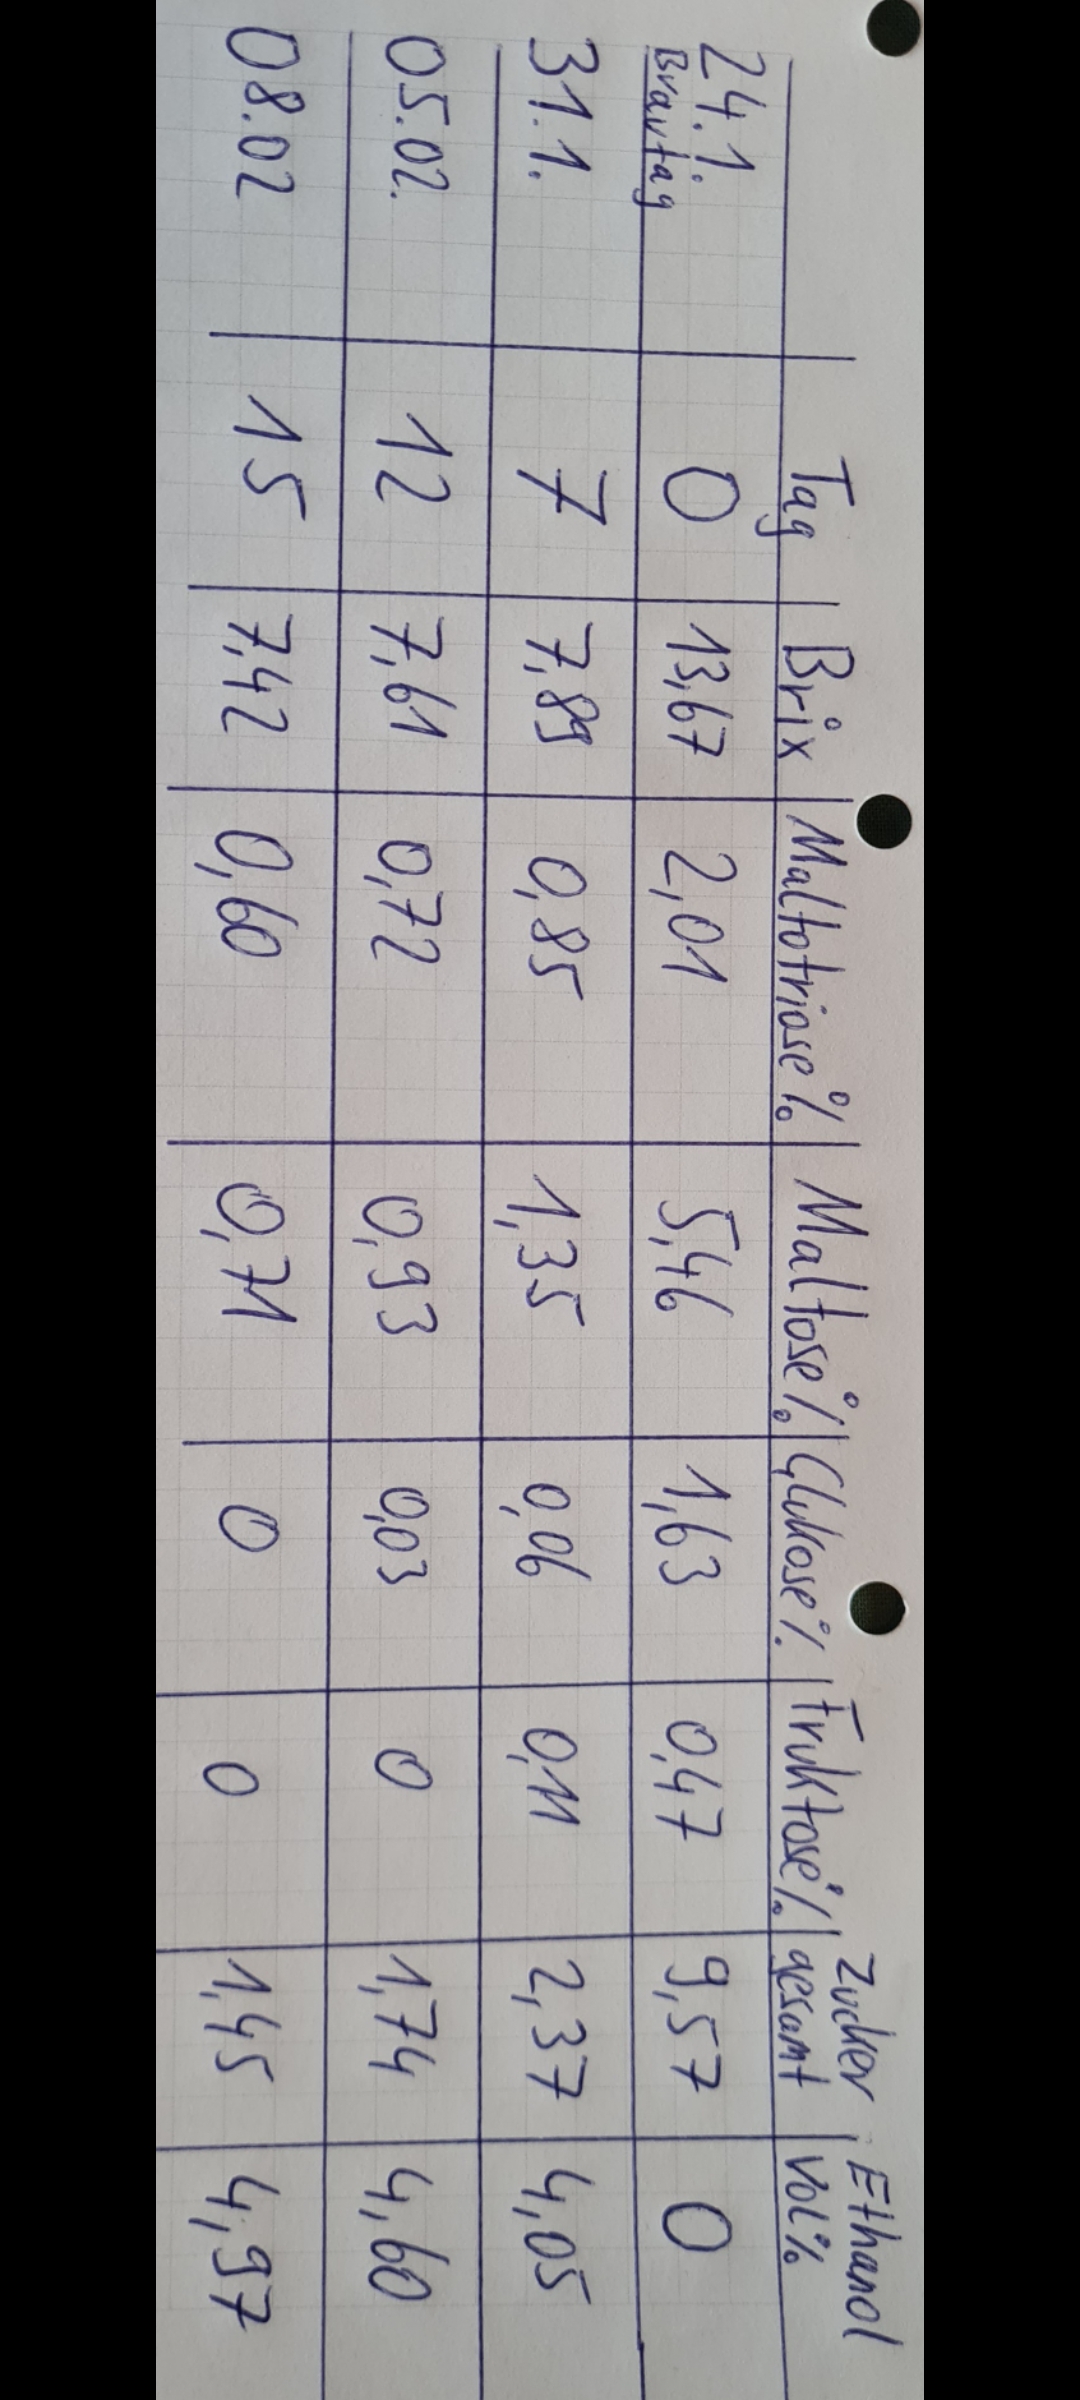 Tag | Brix | Maltotriose % | Maltose % | Glukose % | Fruktose % | Zucker gesamt | Ethanol Vol %
24.1. Brautag | 0 | 13,67 | 2,01 | 5,46 | 1,63 | 0,47 | 9,57 | 0
31.1. | 7 | 7,89 | 0,85 | 1,35 | 0,06 | 0,11 | 2,37 | 4,05
05.02. | 12 | 7,61 | 0,72 | 0,93 | 0,03 | 0 | 1,74 | 4,60
08.02 | 15 | 7,42 | 0,60 | 0,71 | 0 | 0 | 1,45 | 4,97